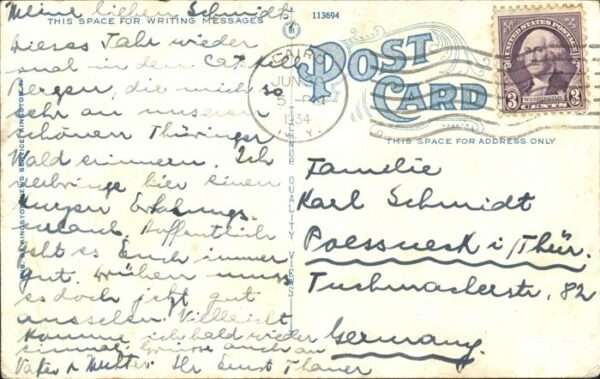 Meine lieben Schmidts
THIS SPACE FOR WRITING MESSAGES
113694
Dieses Jahr wieder
mal in den Catskill
Bergen, die mich so
sehr an unseren
schönen Thüringer
Wald erinnern. Ich
verbringe hier einen
kurzen Erholungs
urlaub. Hoffentlich
geht es Euch immer
gut. drüben muss
es doch jetzt gut
aussehen. Vielleicht
komme ich bald wieder
einmal. Grüsse auch an
Vater & Mutter. Ihr Ernst Thauer
CAIRO
JUN
5 PM
1934
N.Y.
POST
CARD
UNITED STATES POSTAGE
3 CENTS 3
THIS SPACE FOR ADDRESS ONLY
Familie
Karl Schmidt
Poessneck i/Thür.
Tuchmacherstr. 82
Germany.